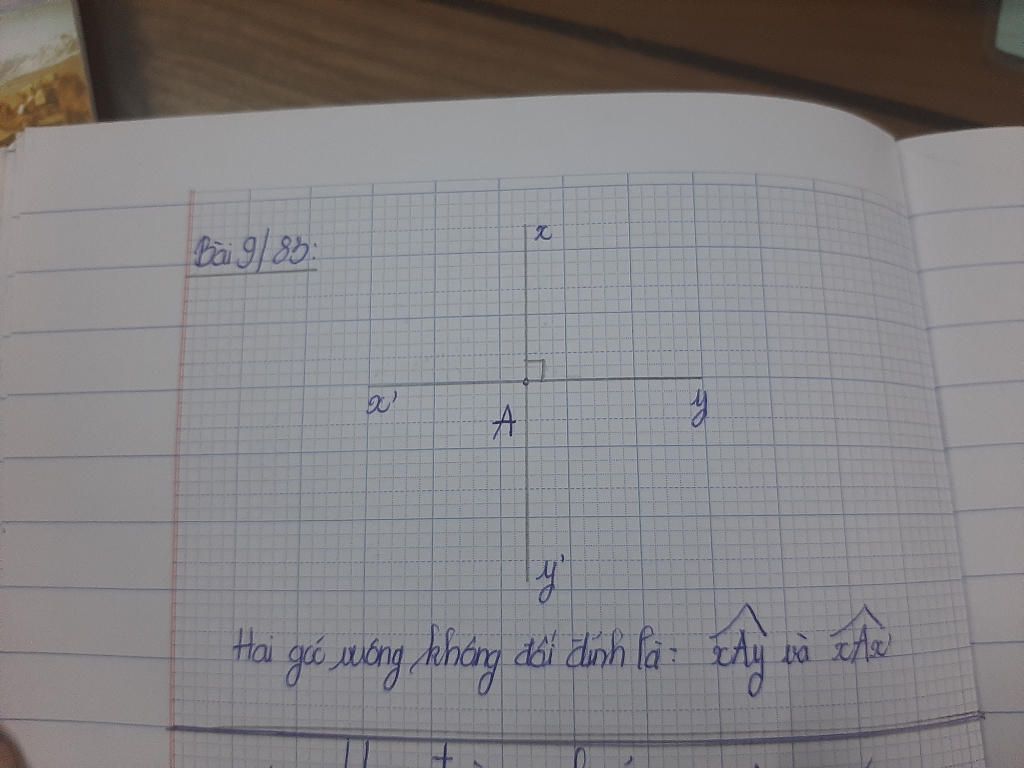 Bài 9/83:
x
x'
A
y
y'
Hai góc vuông không đối đỉnh là: xAy và xAx'